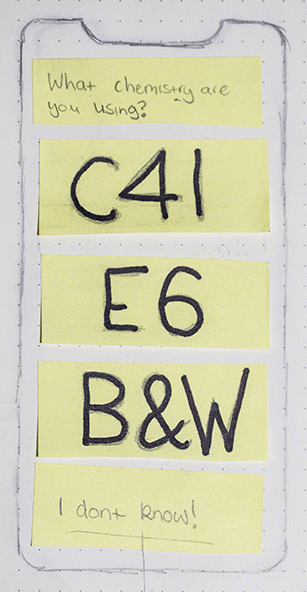 What chemistry are
you using?
C41
E6
B&W
I dont know!